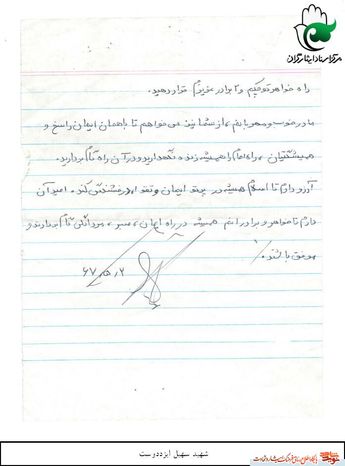 مرکز اسناد ایثارگران
راه خواهر کوچکم و برادر عزیزم قرار دهید.
مادر خوب و مهربانم، از شما نیز می‌خواهم تا با همان ایمان راسخ و
همیشگیتان، راه امام را همیشه زنده نگهدارید و در آن راه گام بردارید.
آرزو دارم تا اسلام همیشه در پرتو ایمان و تقوا بدرخشد. امید آن
دارم تا خواهر و برادرانم همیشه در راه ایمان، صبر، گام بردارند و
موفق باشند.
۶۷
شهید سهیل ایزددرست